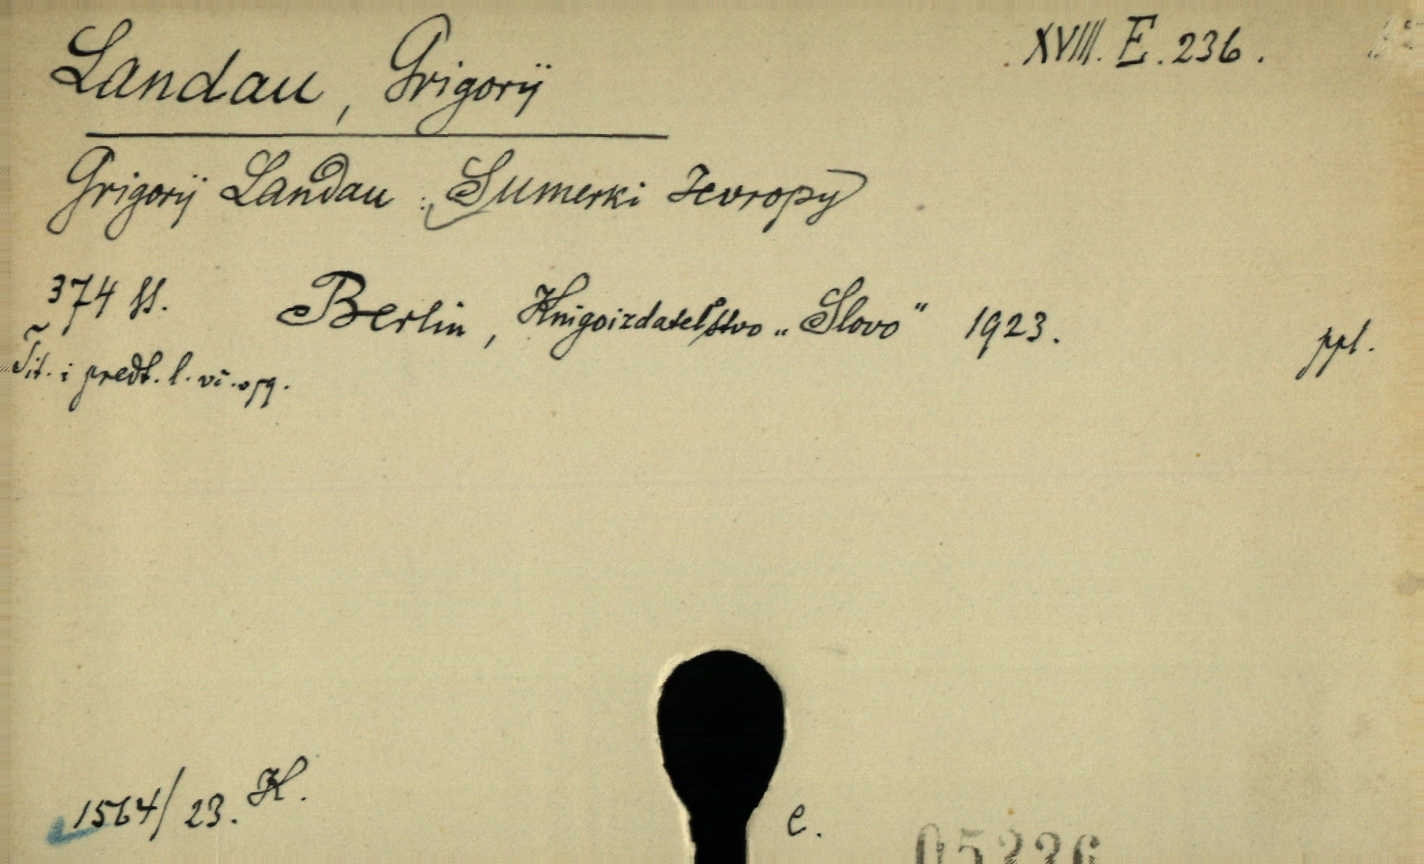 Landau, Grigorij
XVIII. E. 236.
Grigorij Landau: Sumerki Jevropy
374 ss. Berlin, Knigoizdatelstvo „Slovo" 1923. ppl.
Tit. i predt. l.
1564/23. K.
e.